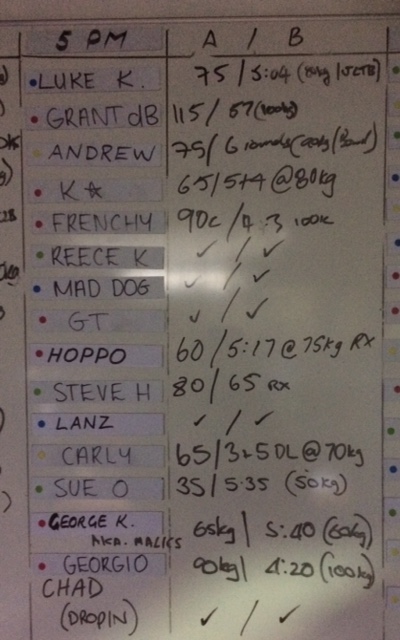 5 PM A / B
LUKE K. 75 / 5:04
GRANT dB 115 / 57 (100kg)
ANDREW 75 / 6 rounds
K☆ 65 / 5+4 @ 80kg
FRENCHY 90c / 4:3 100k
REECE K ✓ / ✓
MAD DOG ✓ / ✓
GT ✓ / ✓
HOPPO 60 / 5:17 @ 75kg RX
STEVE H 80 / 65 RX
LANZ ✓ / ✓
CARLY 65 / DL @ 70kg
SUE O 35 / 5:35 (50kg)
GEORGE K. 65kg | 5:40 (60kg)
AKA. MALICS
GEORGIO 90kg | 4:20 (100kg)
CHAD
(DROPIN) ✓ / ✓